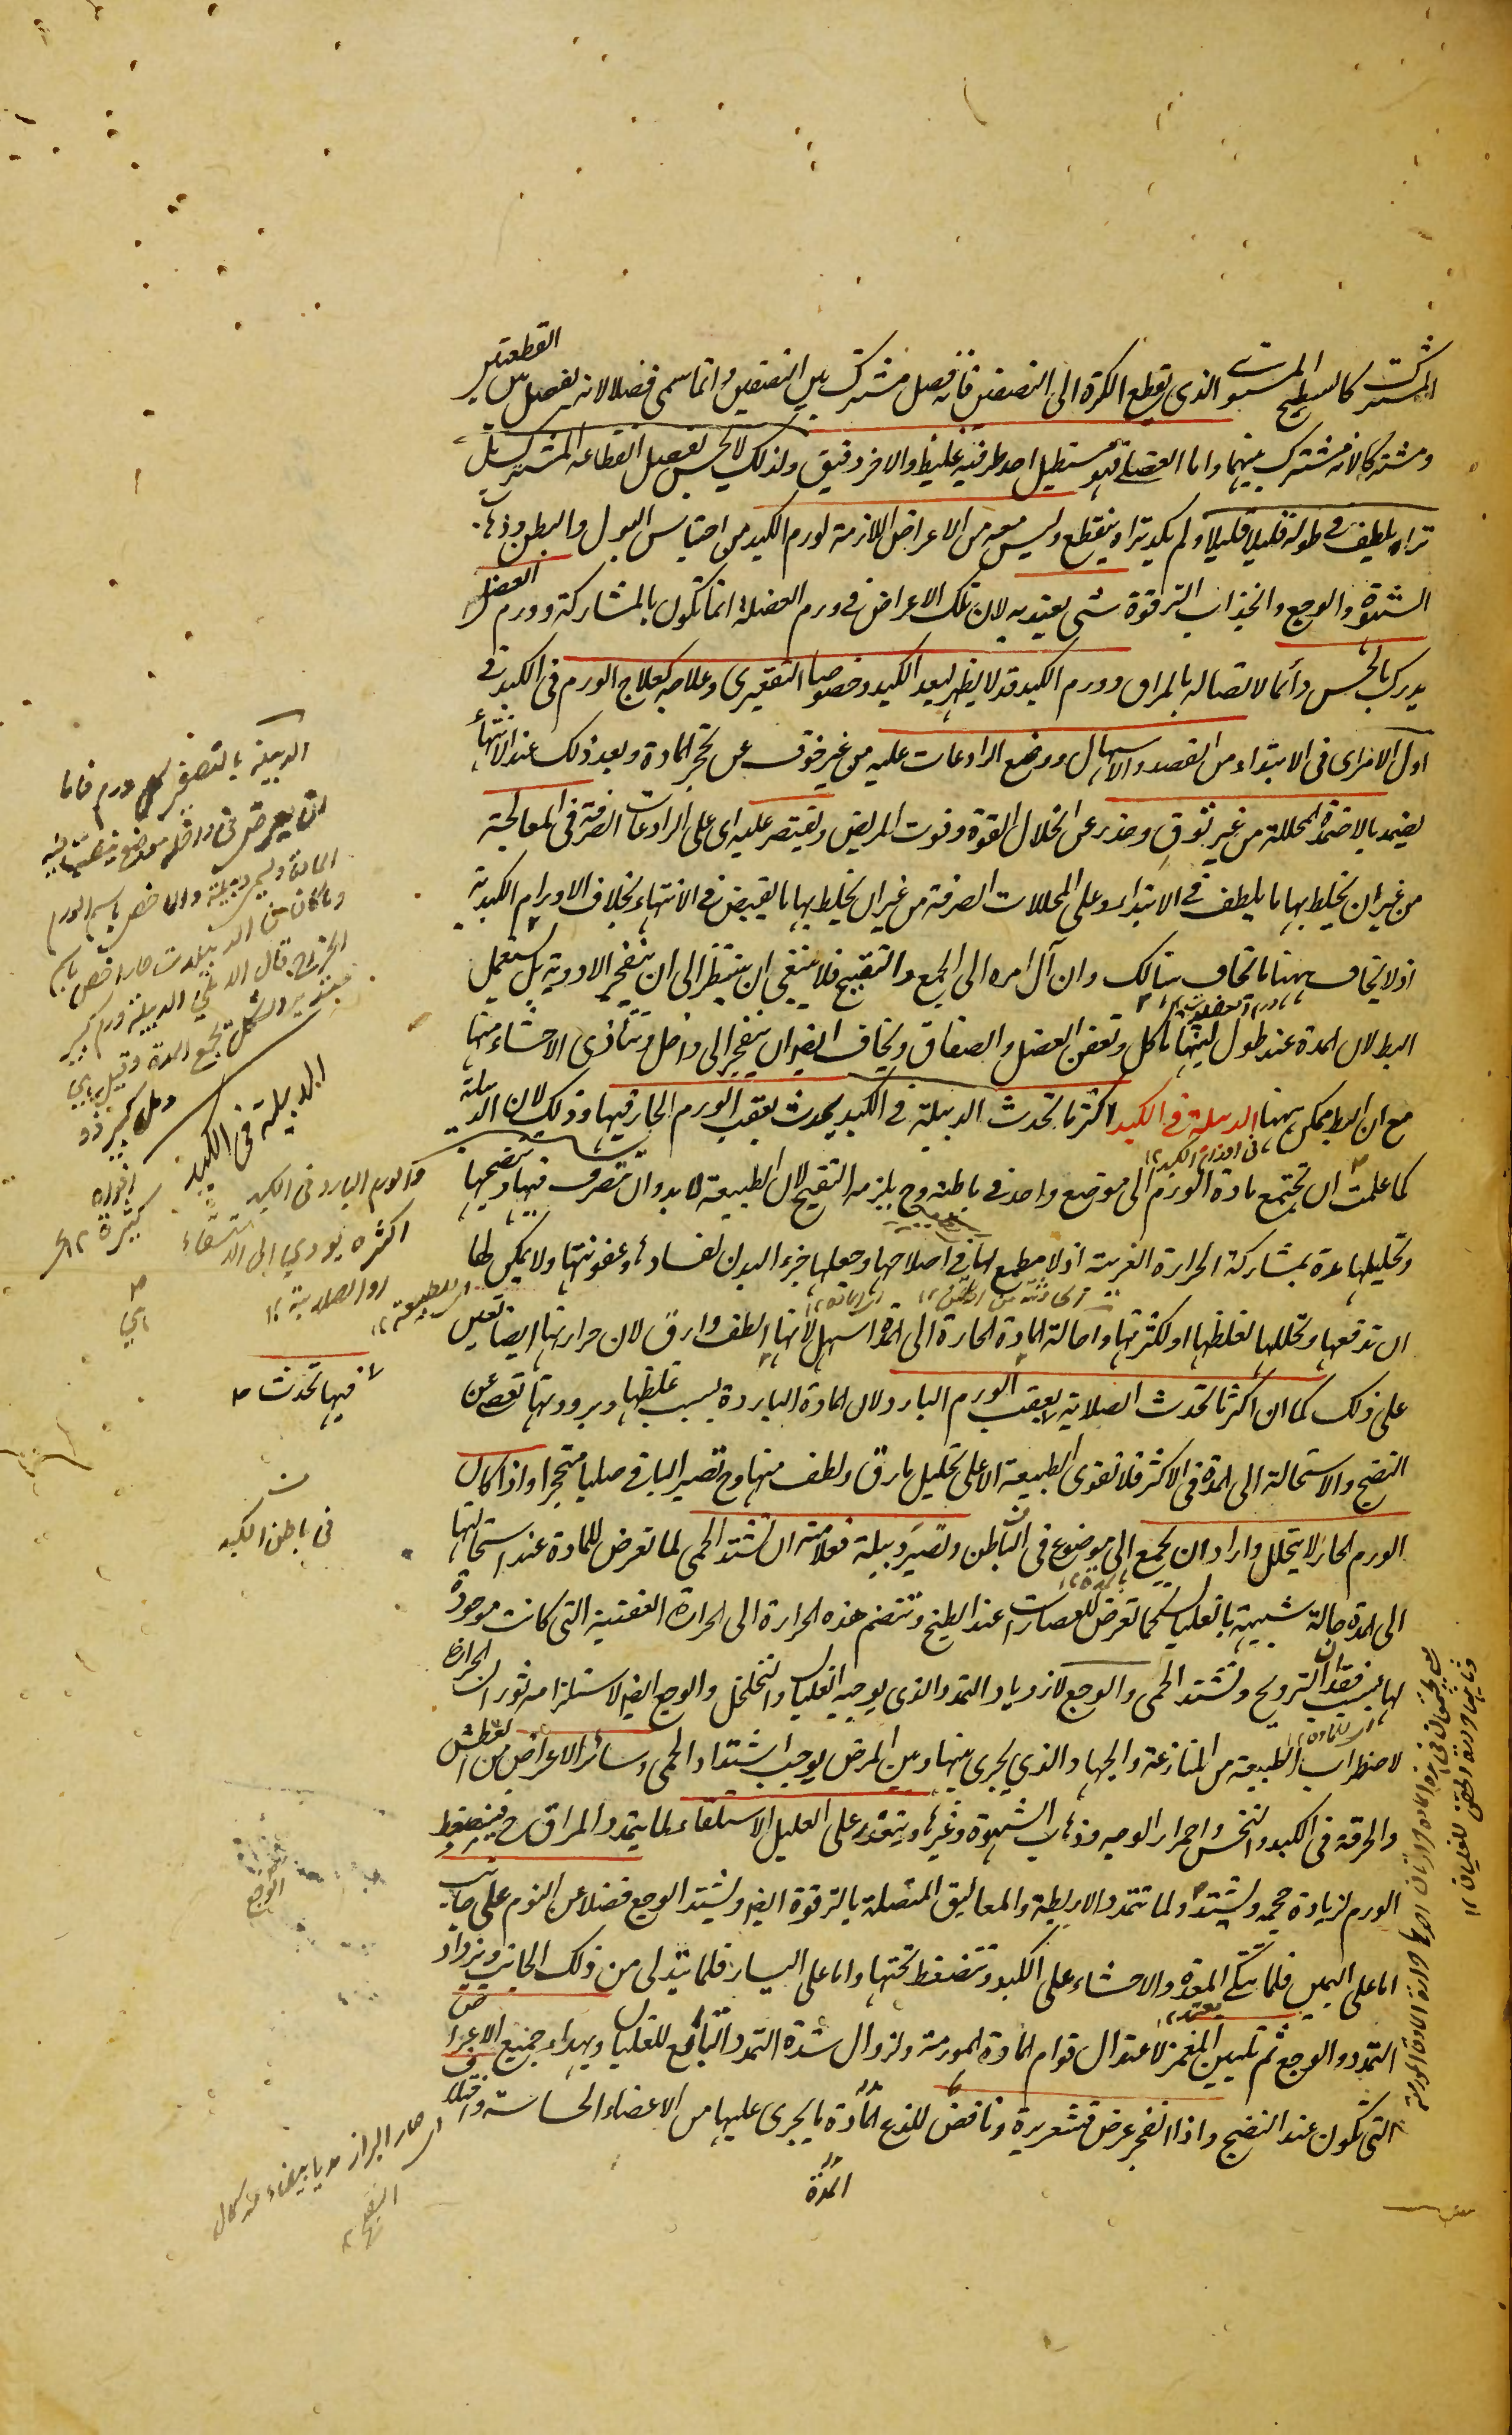 المشترك كالسطح المستوى الذى يقطع الكرة الى النصفين فانه فصل مشترك بين النصفين وانما سمى فصلا لانه يفصل بين القطعتين
ومشتركا لانه مشترك بينهما واما العضلى فهو مستطيل احد طرفيه غليظ والاخر دقيق ولذلك لا يحس بفصل انقطاعه المشترك بل
تراه يلطف فى طوله قليلا قليلا ولم يكد يتراء ينقطع وليس معه من الاعراض اللازمة لورم الكبد من احتباس البول والبطن وذهاب
الشهوة والوجع وانجذاب الترقوة شى يعتد به لان تلك الاعراض فى ورم العضلة انما تكون بالمشاركة وورم العضل
يدرك بالحس دائما لاتصاله بالمراق وورم الكبد قد لا يظهر لبعد الكبد وخصوصا التقعيرى وعلاجه كعلاج الورم فى الكبد فى
اول الامرى فى الابتداء من الفصد والاسهال ووضع الرادعات عليه من غير خوف عن تحجر المادة وبعد ذلك عند الانتهاء
يضمد بالاضمدة المحللة من غير توق وحذر عن انحلال القوة وفوت المريض ويقتصر عليه اى على الرادعات الصرفة فى المعالجة
من غير ان يخلط بها ما يلطف فى الابتداء وعلى المحللات الصرفة من غير ان يخلط بها ما يقبض فى الانتهاء بخلاف الاورام الكبدية
اذ لا يخاف ههنا ما يخاف هنالك وان آل امره الى الجمع والتقيح فلا ينبغى ان ينتظر الى ان ينفجر الادوية بل يستعمل
البط لان المدة عند طول لبثها تاكل وتعفن العضل والصفاق ويخاف ايضا ان ينفجر الى داخل وتتأذى الاحشاء منها
مع ان البط ممكن ههنا الدبيلة فى الكبد اكثر ما تحدث الدبيلة فى الكبد يحدث بعقب الورم الحار فيها وذلك لان الدبيلة
كما علمت ان تجتمع مادة الورم الى موضع واحد فى باطنه وح يلزمه التقيح لان الطبيعة لا بد وان تتصرف فيها وتنضجها
وتحليلها مدة بمشاركة الحرارة الغريبة اذ لا مطمع لها فى اصلاحها وجعلها جزء البدن لفسادها وعفونتها ولا يمكن لها
ان تدفعها وتحللها لغلظها او لكثرتها واحالة المادة الحارة الى المدة اسهل لانها الطف وارق لان حرارتها ايضا تعين
على ذلك كما ان اكثر ما تحدث الصلابة بعقب الورم البارد لان المادة الباردة بسبب غلظها وبرودتها تعصى عن
النضج والاستحالة الى المدة فى الاكثر فلا تقوى الطبيعة الا على تحليل ما رق ولطف منها وح تصير الباقى صلبا متحجرا واذا كان
الورم الحار لا يتحلل واراد ان يجمع الى موضوع فى الباطن وتصير دبيلة فعلامته ان تشتد الحمى لما تعرض للمادة عند استحالتها
الى المدة حالة شبيهة بالغليان كما تعرض للعصارات عند الطبخ وتنضم هذه الحرارة الى الحرارة العفنية التى كانت موجودة
لها بسبب فقدان الترويح وتشتد الحمى والوجع لازدياد التمدد الذى يوجبه الغليان والتخلخل والوجع ايضا لاستلزامه ثوران الحرارة
لاضطراب الطبيعة من المنازعة والجهاد الذى يجرى بينها وبين المرض يوجب اشتداد الحمى وسائر الاعراض من العطش
والحرقة فى الكبد والنخس واحمرار الوجه وذهاب الشهوة وغيرها ويتعذر على العليل الاستلقاء لما يتمدد المراق ح فينضغط
الورم لزيادة حجمه ويشتد ولما تتمدد الاربطة والمعاليق المتصلة بالترقوة ايضا ويشتد الوجع فضلا عن النوم على جانب
اما على اليمين فلما تتكى المعدة والاحشاء على الكبد وتنضغط تحتها واما على اليسار فلما يتدلى من ذلك الجانب ويزداد
التمدد والوجع ثم تليين المغمز لاعتدال قوام المادة المورمة ولزوال شدة التمدد التابع للغليان ويهداء جميع الاعراض
التى تكون عند النضج واذا انفجر عرض قشعريرة ونافض للذع المادة ما يجرى عليها من الاعضاء الحساسة
المدة
الدبيلة بالتصغير كل ورم فاما
ان يعرض فى داخله موضع ينصب اليه
المادة وليسم دبيلة والا خص باسم الورم
وما كان من الدبيلات حارا خص باسم
الخراج
مستدير الشكل تجمع المدة وقيل هى
دمل كبير ذو
افواه
كثيرة
الدبيلة فى الكبد
والورم البارد فى الكبد
اكثره يودى الى الاستسقاء
او الصلابة ١٢
فيها تحدث
فى باطن الكبد
الوجع
اى صار البراز مديا بيضاء عند كمال
النضج